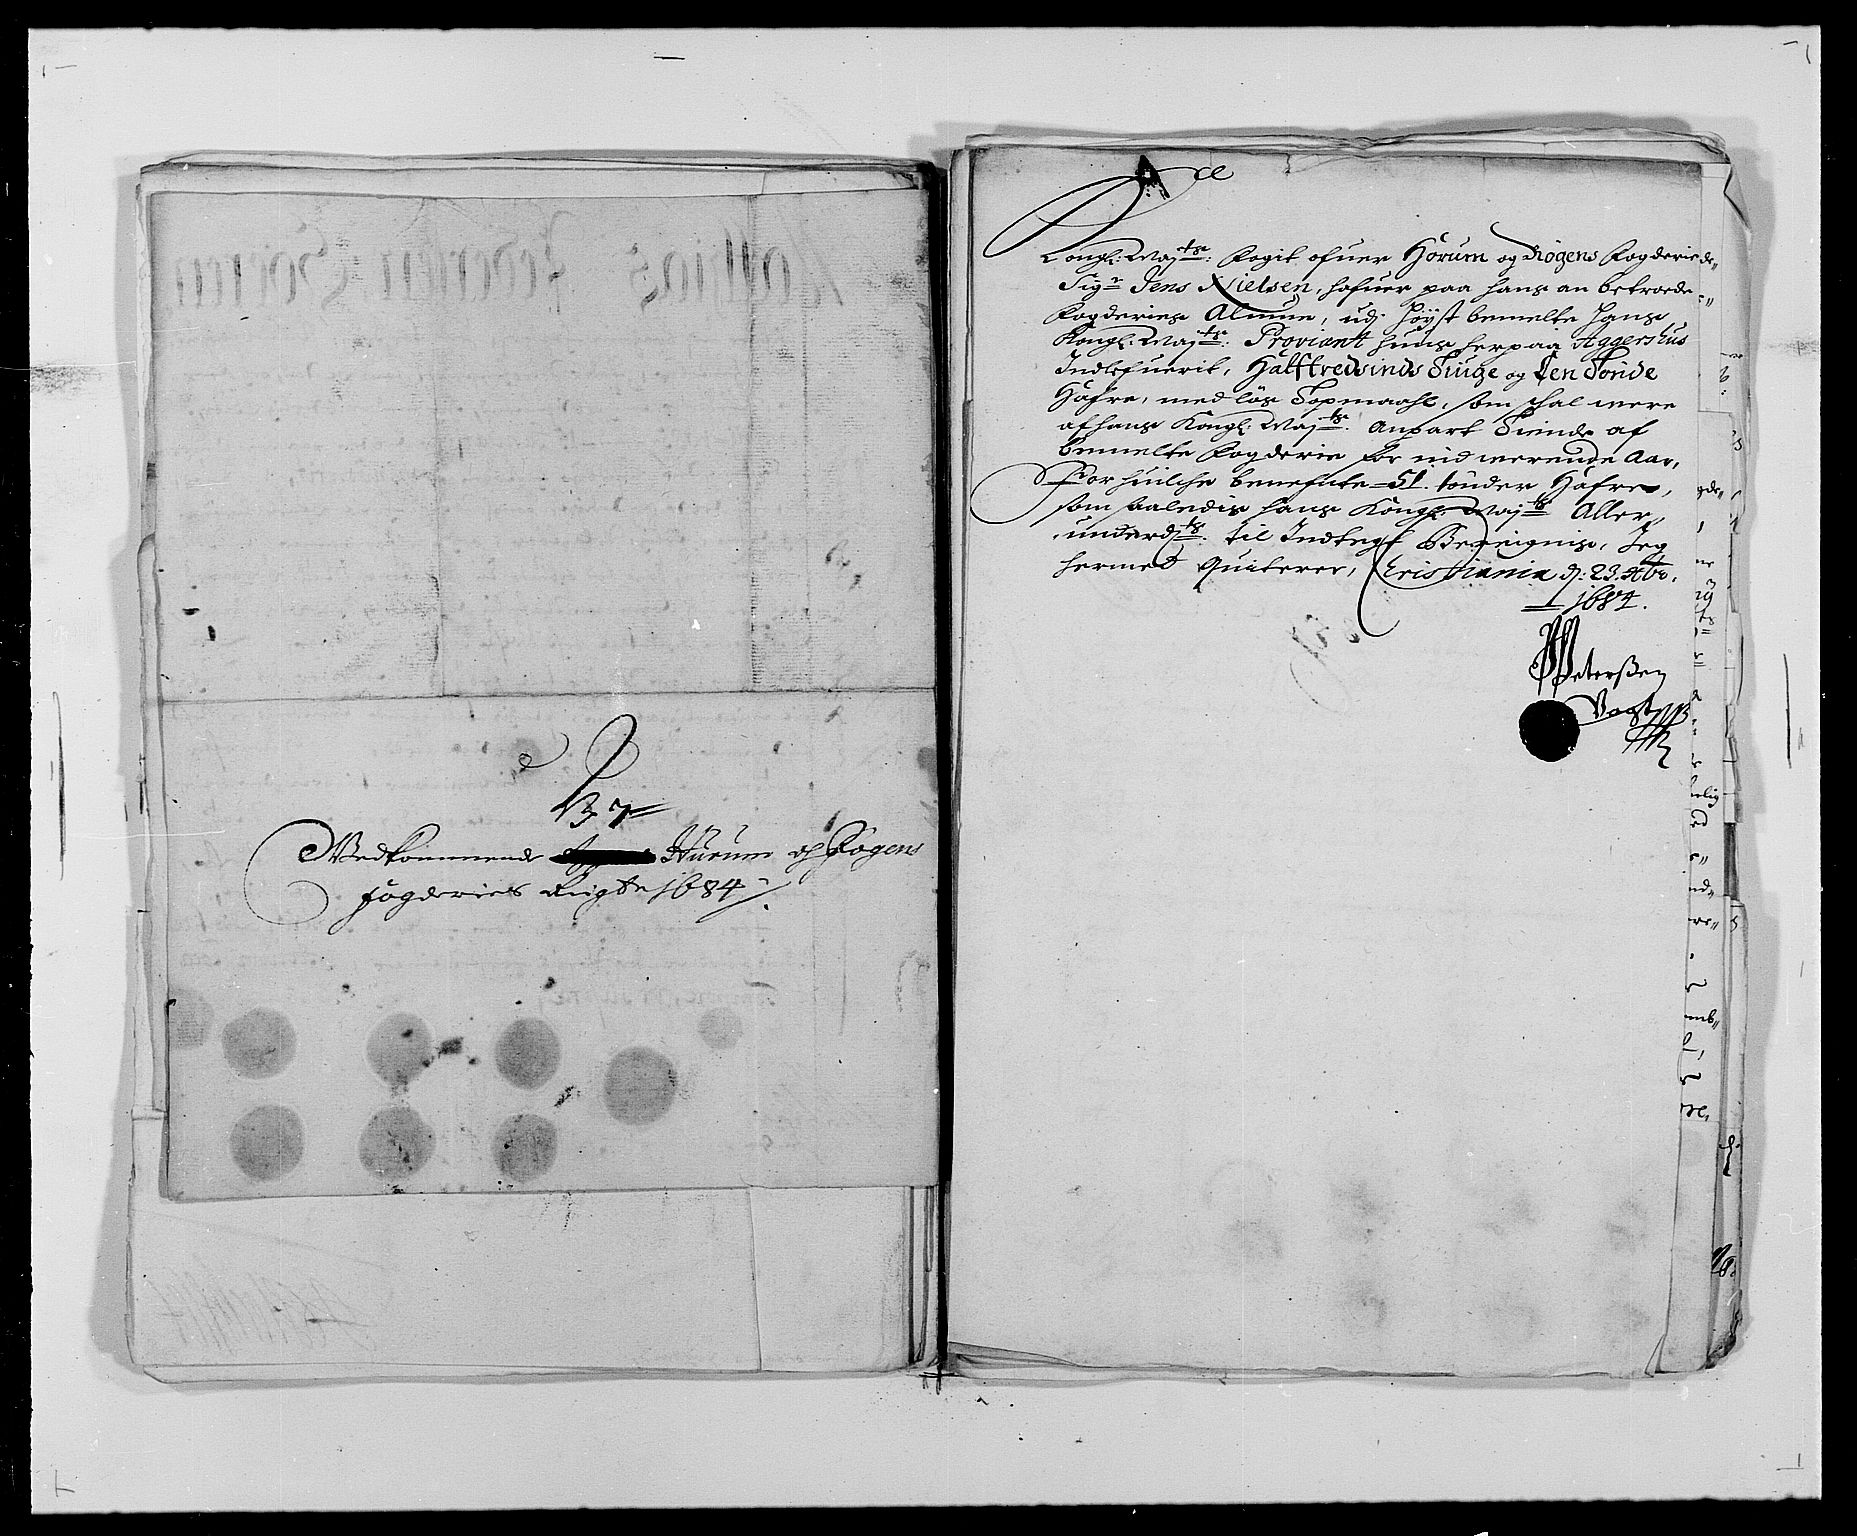 B 7
Vedkommende Hurum og Rogens
fogderies Rigt 1684
Kongl: Maj.ts: Fogit ofuer Hörum og Rögens Fogderie
Sig.r Jens Nielsen, hafuer paa hans an betroede
Fogderies Almue, udj höyst bemelte Hans
Kongl: Maj.ts: Proviant huus her paa Aggershus
Indlefuerit, Halfftredsinds Tiuge og Een Tönde
Hafre, med lös Topmaahl, som schal were
af hans Kongl: Maj.ts: Anpart Tiende af
bemelte Fogderie for nu werende Aar,
For huilche benefnte 51. tönder Hafre,
som saaledis hans Kongl: Maj.ts Aller
underd.ts. til Indtegt Bereignis, Jeg
hermed Quiterer, Cristiania d: 23. xbr.
1684.
Peterßen
Vogt